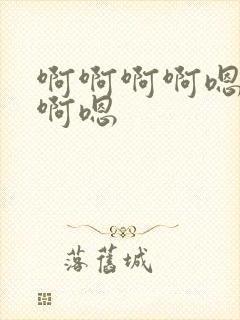 啊啊啊啊嗯
啊嗯
落舊城